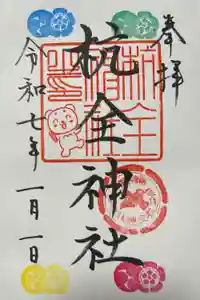 奉拝
杭全神社
令和七年
一月一日